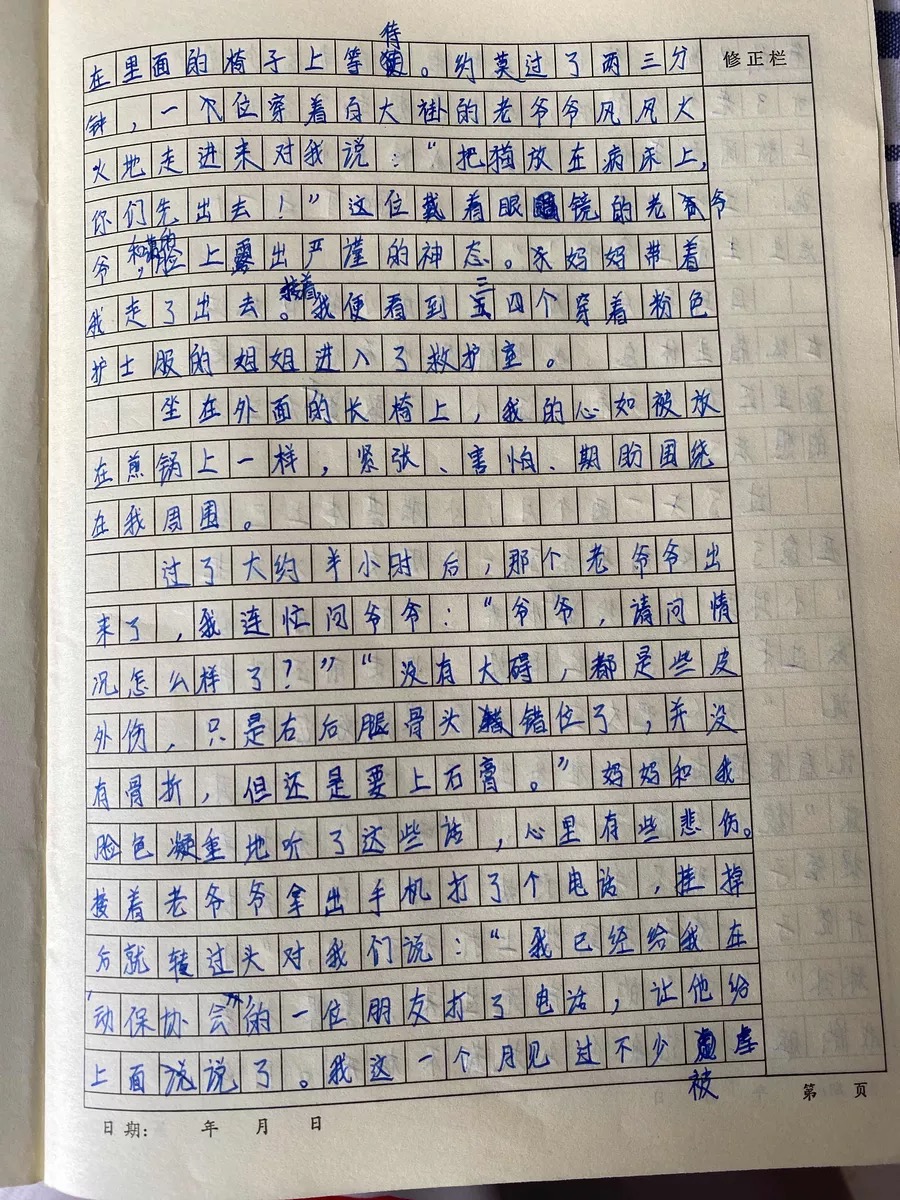 在里面的椅子上等待。约莫过了两三分
修正栏
钟，一位穿着白大褂的老爷爷风风火
火地走进来对我说：“把猫放在病床上，
你们先出去！”这位戴着眼镜的老爷
爷，脸上露出严谨的神态。妈妈带着
我走了出去。接着我便看到三四个穿着粉色
护士服的姐姐进入了救护室。
坐在外面的长椅上，我的心如被放
在煎锅上一样，紧张、害怕、期盼围绕
在我周围。
过了大约半小时后，那个老爷爷出
来了，我连忙问爷爷：“爷爷，请问情
况怎么样了？”“没有大碍，都是些皮
外伤，只是右后腿骨头错位了，并没
有骨折，但还是要上石膏。”妈妈和我
脸色凝重地听了这些话，心里有些悲伤。
接着老爷爷拿出手机打了个电话，挂掉
后就转过头对我们说：“我已经给我在
‘动保协会’的一位朋友打了电话，让他给
上面说说了。我这一个月见过不少被
日期： 年 月 日
第 页